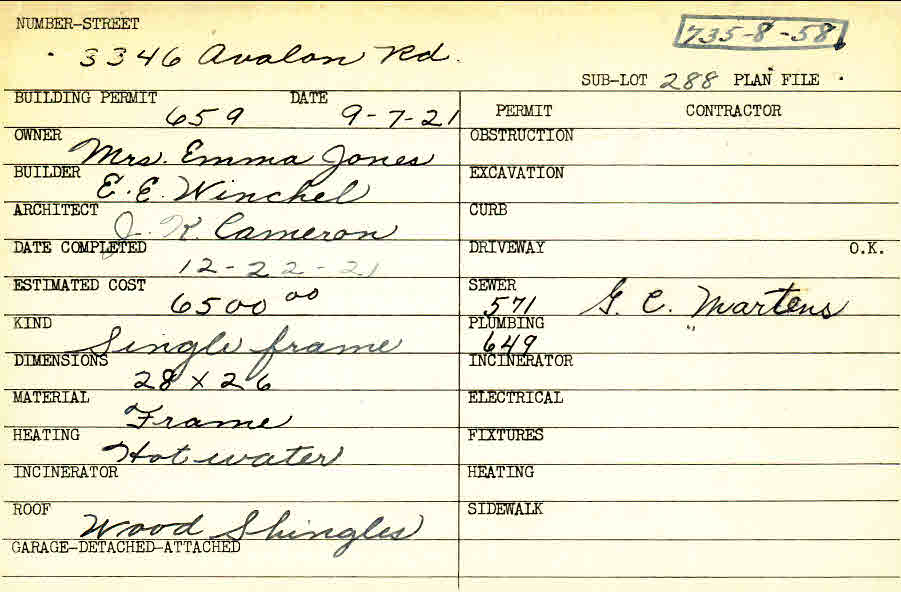 NUMBER-STREET
3346 Avalon Rd.
735-8-58
SUB-LOT 288 PLAN FILE
BUILDING PERMIT DATE
659 9-7-21
PERMIT CONTRACTOR
OWNER
Mrs. Emma Jones
OBSTRUCTION
BUILDER
E. E. Winchel
EXCAVATION
ARCHITECT
J. K. Cameron
CURB
DATE COMPLETED
12-22-21
DRIVEWAY O.K.
ESTIMATED COST
6500 00
SEWER
571 G. C. Martens
KIND
Single frame
PLUMBING "
649
DIMENSIONS
28 x 26
INCINERATOR
MATERIAL
Frame
ELECTRICAL
HEATING
Hot water
FIXTURES
INCINERATOR
HEATING
ROOF
Wood Shingles
SIDEWALK
GARAGE-DETACHED-ATTACHED